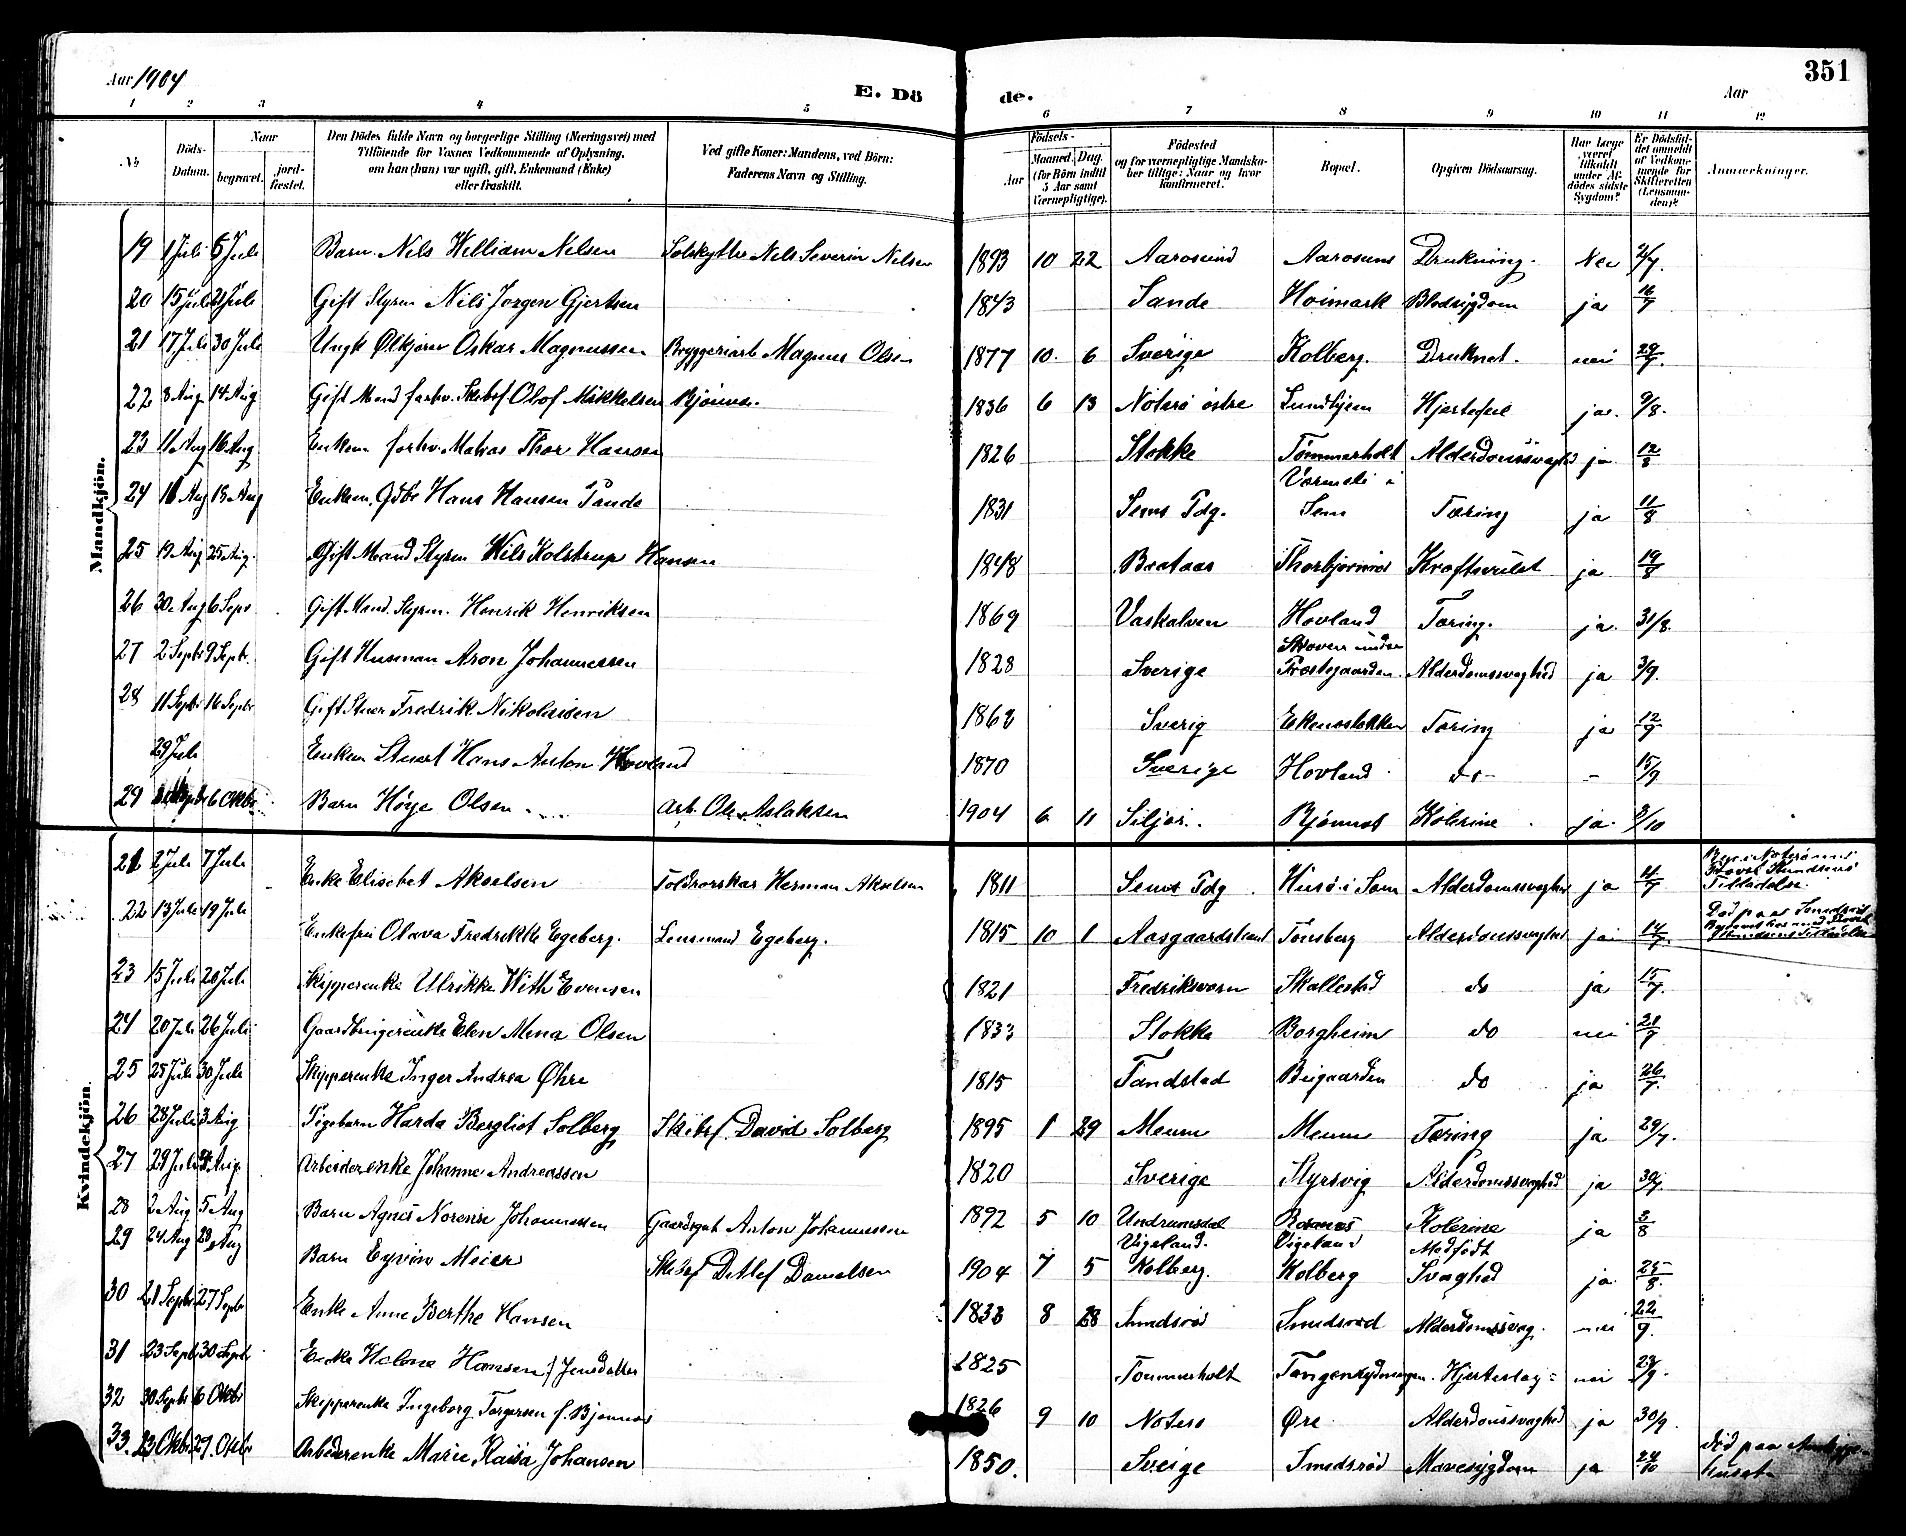 Aar 1904
E. Döde.
Aar
351
1 2 3 4 5 6 7 8 9 10 11 12
№
Döds-Datum.
Naar
begravet.
jordfæstet.
Den Dödes fulde Navn og borgerlige Stilling (Næringsvei) med
Tilföiende for Voxnes Vedkommende af Oplysning,
om han (hun) var ugift, gift, Enkemand (Enke)
eller fraskilt.
Ved gifte Koner: Mandens, ved Börn:
Faderens Navn og Stilling.
Födsels-
Aar
Maaned. Dag.
(for Börn indtil
5 Aar samt
Værnepligtige).
Födested
og for værnepligtige Mandskaber tillige: Naar og hvor
konfirmeret.
Bopæl.
Opgiven Dödsaarsag.
Har Læge været tilkaldt under Afdödes sidste Sygdom?
Er Dödsfaldet anmeldt af Vedkommende for Skifteretten (Lensmanden)?
Anmærkninger.
Mandkjön.
19 1 Juli 5 Juli Barn Nils William Nilsen Nils Severin Nilsen 1893 10 22 Aarosund Aarosund Drukning. Nei 2/7.
20 15 Juli 21 Juli Gift Styrm Nils Jorgen Gjertsen 1843 Sande Hoimark Blodsygdom ja 16/7
21 17 Juli 30 Juli Ungk Oskar Magnussen Bryggeriarb Magnus Olsen 1877 10. 6 Sverige Kolberg. Druknet. nei 29/7.
22 8 Aug 14 Aug Gift Mand forhv. Skibsf Olof Mikkelsen Bjönnes. 1836 6 13 Notero östre Sundhjem Hjertefeil ja. 9/8.
23 11 Aug 16 Aug Enkem forhv. Matros Thor Hansen 1826 Stokke Tømmerholt Alderdomssvaghed ja 12/8
24 Aug 18 Aug Enkem. Gdbr Hans Hansen Tande 1831 Sems Pdg. i Sem Tæring ja 11/8
25 19 Aug 25 Aug. Gift Mand Styrm Nils Holstrup Hansen 1848 Brataas Thorbjörnrød Kræftsvulst ja 19/8
26 30. Aug 6 Sept Gift Mand. Styrm. Henrik Henriksen 1869 Vaskalven Hovland Tæring. ja. 31/8.
27 2 Septr 9 Septr. Gift Husman Aron Johannessen 1828 Sverige Skoven under Præstegaarden. Alderdomssvaghed ja 3/9.
28 11 Septr 16 Septr Gift Stuer Fredrik Nikolaisen 1862 Sverig Ekenesbakken Tæring ja 12/9
29 Juli Enkem Stuert Hans Anton Hovland 1870 Sverige Hovland do - 15/9
29 6 Oktbr Barn Høye Olsen Arb. Ole Aslaksen 1904 6 11 Siljor. Bjönnes Kolerine ja. 3/10
Kvindekjön.
21 2 Juli 7 Juli Enke Elisebet Akselsen Toldrorskar Herman Akselsen 1811 Sems Pdg Husö i Sem Alderdomssvaghed ja 4/7 Tilladelse.
22 13 Juli 19 Juli Enkefru Olava Fredrikke Egeberg. Lensmand Egeberg. 1815 10 1 Aasgaardstrand Tönsberg Alderdomssvaghed ja 14/7. Död paa Tilladelse
23 15 Juli 20 Juli Skipperenke Ulrikke With Evensen 1821 Fredriksværn Skallestad do ja 15/7.
24 20 Juli 26 Juli Gaardbrugerenke Elen Mina Olsen 1833 Stokke Borgheim do nei 21/7
25 25 Juli 30 Juli Skipperenke Inger Andrea Øhre 1815 Tandstad Beigaarden do ja 26/7.
26 28 Juli 3 Aug Pigebarn Harda Bergliot Solberg Skibsf. David Solberg 1895 1 29 Meum Meum Tæring ja 29/7.
27 29 Juli Aug. Arbeiderenke Johanne Andreassen 1820 Sverige Styrsvig Alderdomssvaghed ja 30/7.
28 2 Aug 5 Aug Barn Agnes Norense Johannessen Anton Johannessen 1892 5 10 Undrumsdal Vigeland. Vigeland Kolerine ja 3/8
29 24 Aug 28 Aug Barn Eyvin Meier Skibsf Detlef Danielsen 1904 7 5 Kolberg. Kolberg Medfödt Svaghed ja 25/8.
30 21 Septr 27 Septr Enke Anne Berthe Hansen 1833 8 28 Smidsröd Smidsröd Alderdomssvag. nei 22/9.
31 23 Septr 30 Septr Enke Helene Hansen / Jensdatter 1825 Tømmerholt nei 23/9.
32 30 Septr 6 Oktbr Skipperenke Ingeborg Torgersen f. Bjønnes 1826 9 10 Notero Øre Alderdomssvaghed ja 30/9.
33. 23 Oktbr 29. Oktbr Arbederenke Marie Kaisa Johansen 1850. Sverige Smidsröd Mavesygdom ja 24/10 Död paa